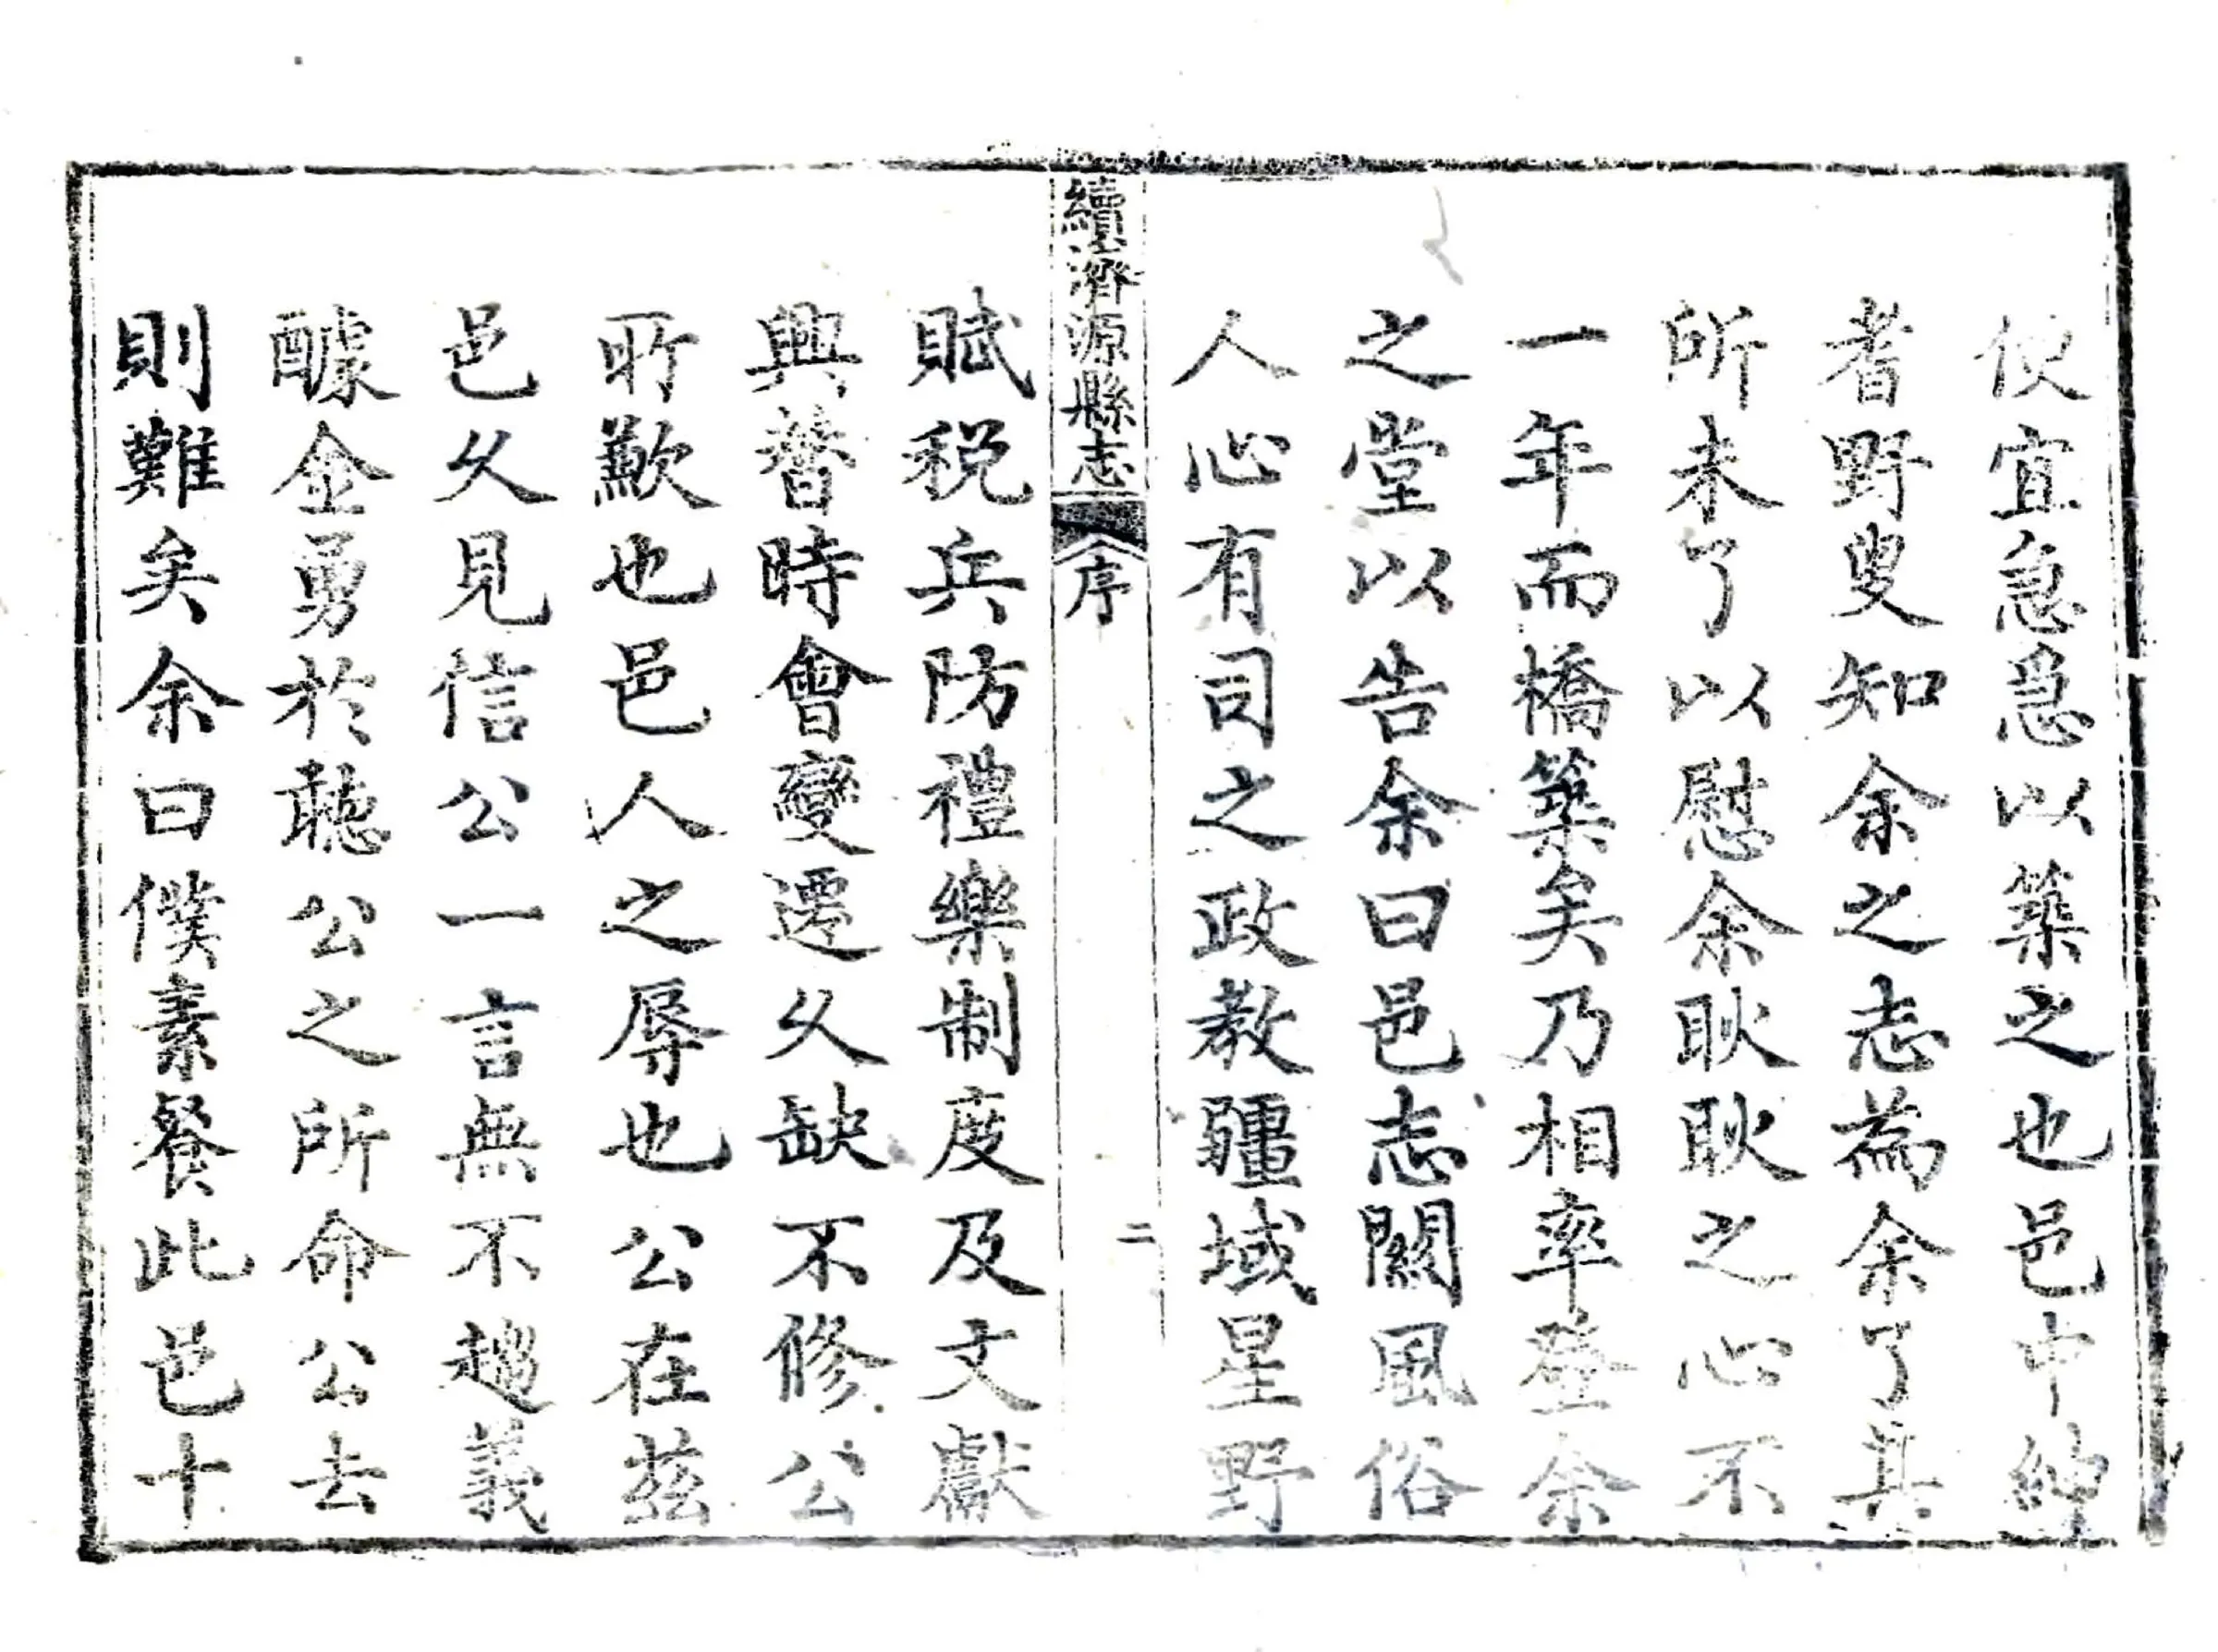 便宜急爲以築之也邑中紳
者野叟知余之志為余了其
所未了以慰余耿耿之心不
一年而橋築矣乃相率登余
之堂以告余曰邑志關風俗
人心有司之政教疆域星野
續濟源縣志 序 二
賦税兵防禮樂制度及文獻
興替時會變遷久缺不修公
所歉也邑人之辱也公在兹
邑久見信公一言無不趨義
醵金勇於聽公之所命公去
則難矣余曰僕素餐此邑十